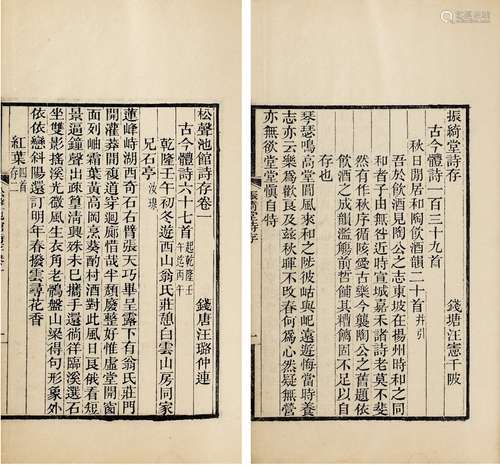 振綺堂詩存 錢塘汪憲千陂
古今體詩一百三十九首
秋日閒居和陶飲酒韻二十首并引
吾於飲酒見陶公之志東坡在揚州時和之同
和者子由無咎近時宣城嘉禾諸詩老莫不斐
然有作秋序循陔愛古樂今襲陶公之舊題依
飲酒之成韻濫觴前哲餔其糟醨固不足以自
存也
琴瑟鳴高堂閶風來和之陟彼岵與屺遠遊當時養
志亦云樂為歡良在茲秋暉不改春何為心然疑無營
亦無欲堂堂愼自持
振綺堂詩存
松聲池館詩存卷一 錢唐汪璐仲連
古今體詩六十七首起乾隆壬午迄丙午
乾隆壬午初冬遊西山翁氏莊憩白雲山房同家
兄石亭汝瑮
蓮峰峙湖西奇石右臂張天巧畢呈露下有翁氏莊門
開灌莽開複道穿迴廊惜哉半頹廢整好惟虛堂開窗
面列岫霜葉黃高岡烹葵酌村酒對此風日良俄看短
景逼鐘聲出疎篁清興殊未已攜手還徜徉臨溪選石
坐雙影搖溪光微風生衣角老鶴盤山梁得句形象外
依依戀斜陽還訂明年春撥雲尋花香
紅葉四首存二